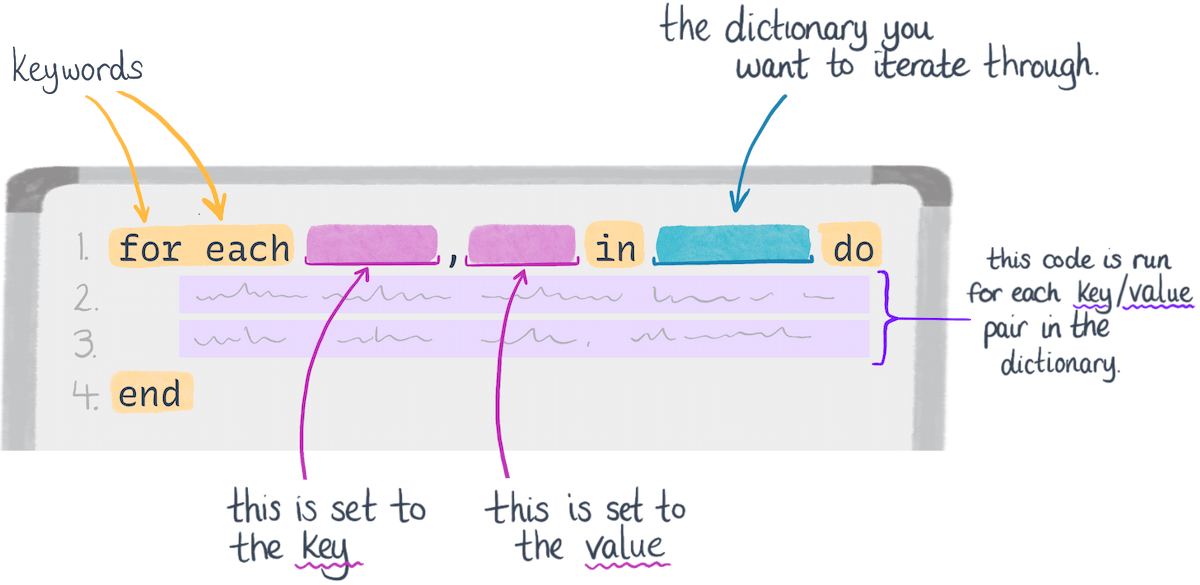 the dictionary you
want to iterate through.
keywords
1. for each , in do
2.
3.
4. end
this code is run
for each key/value
pair in the
dictionary.
this is set to
the key
this is set to
the value